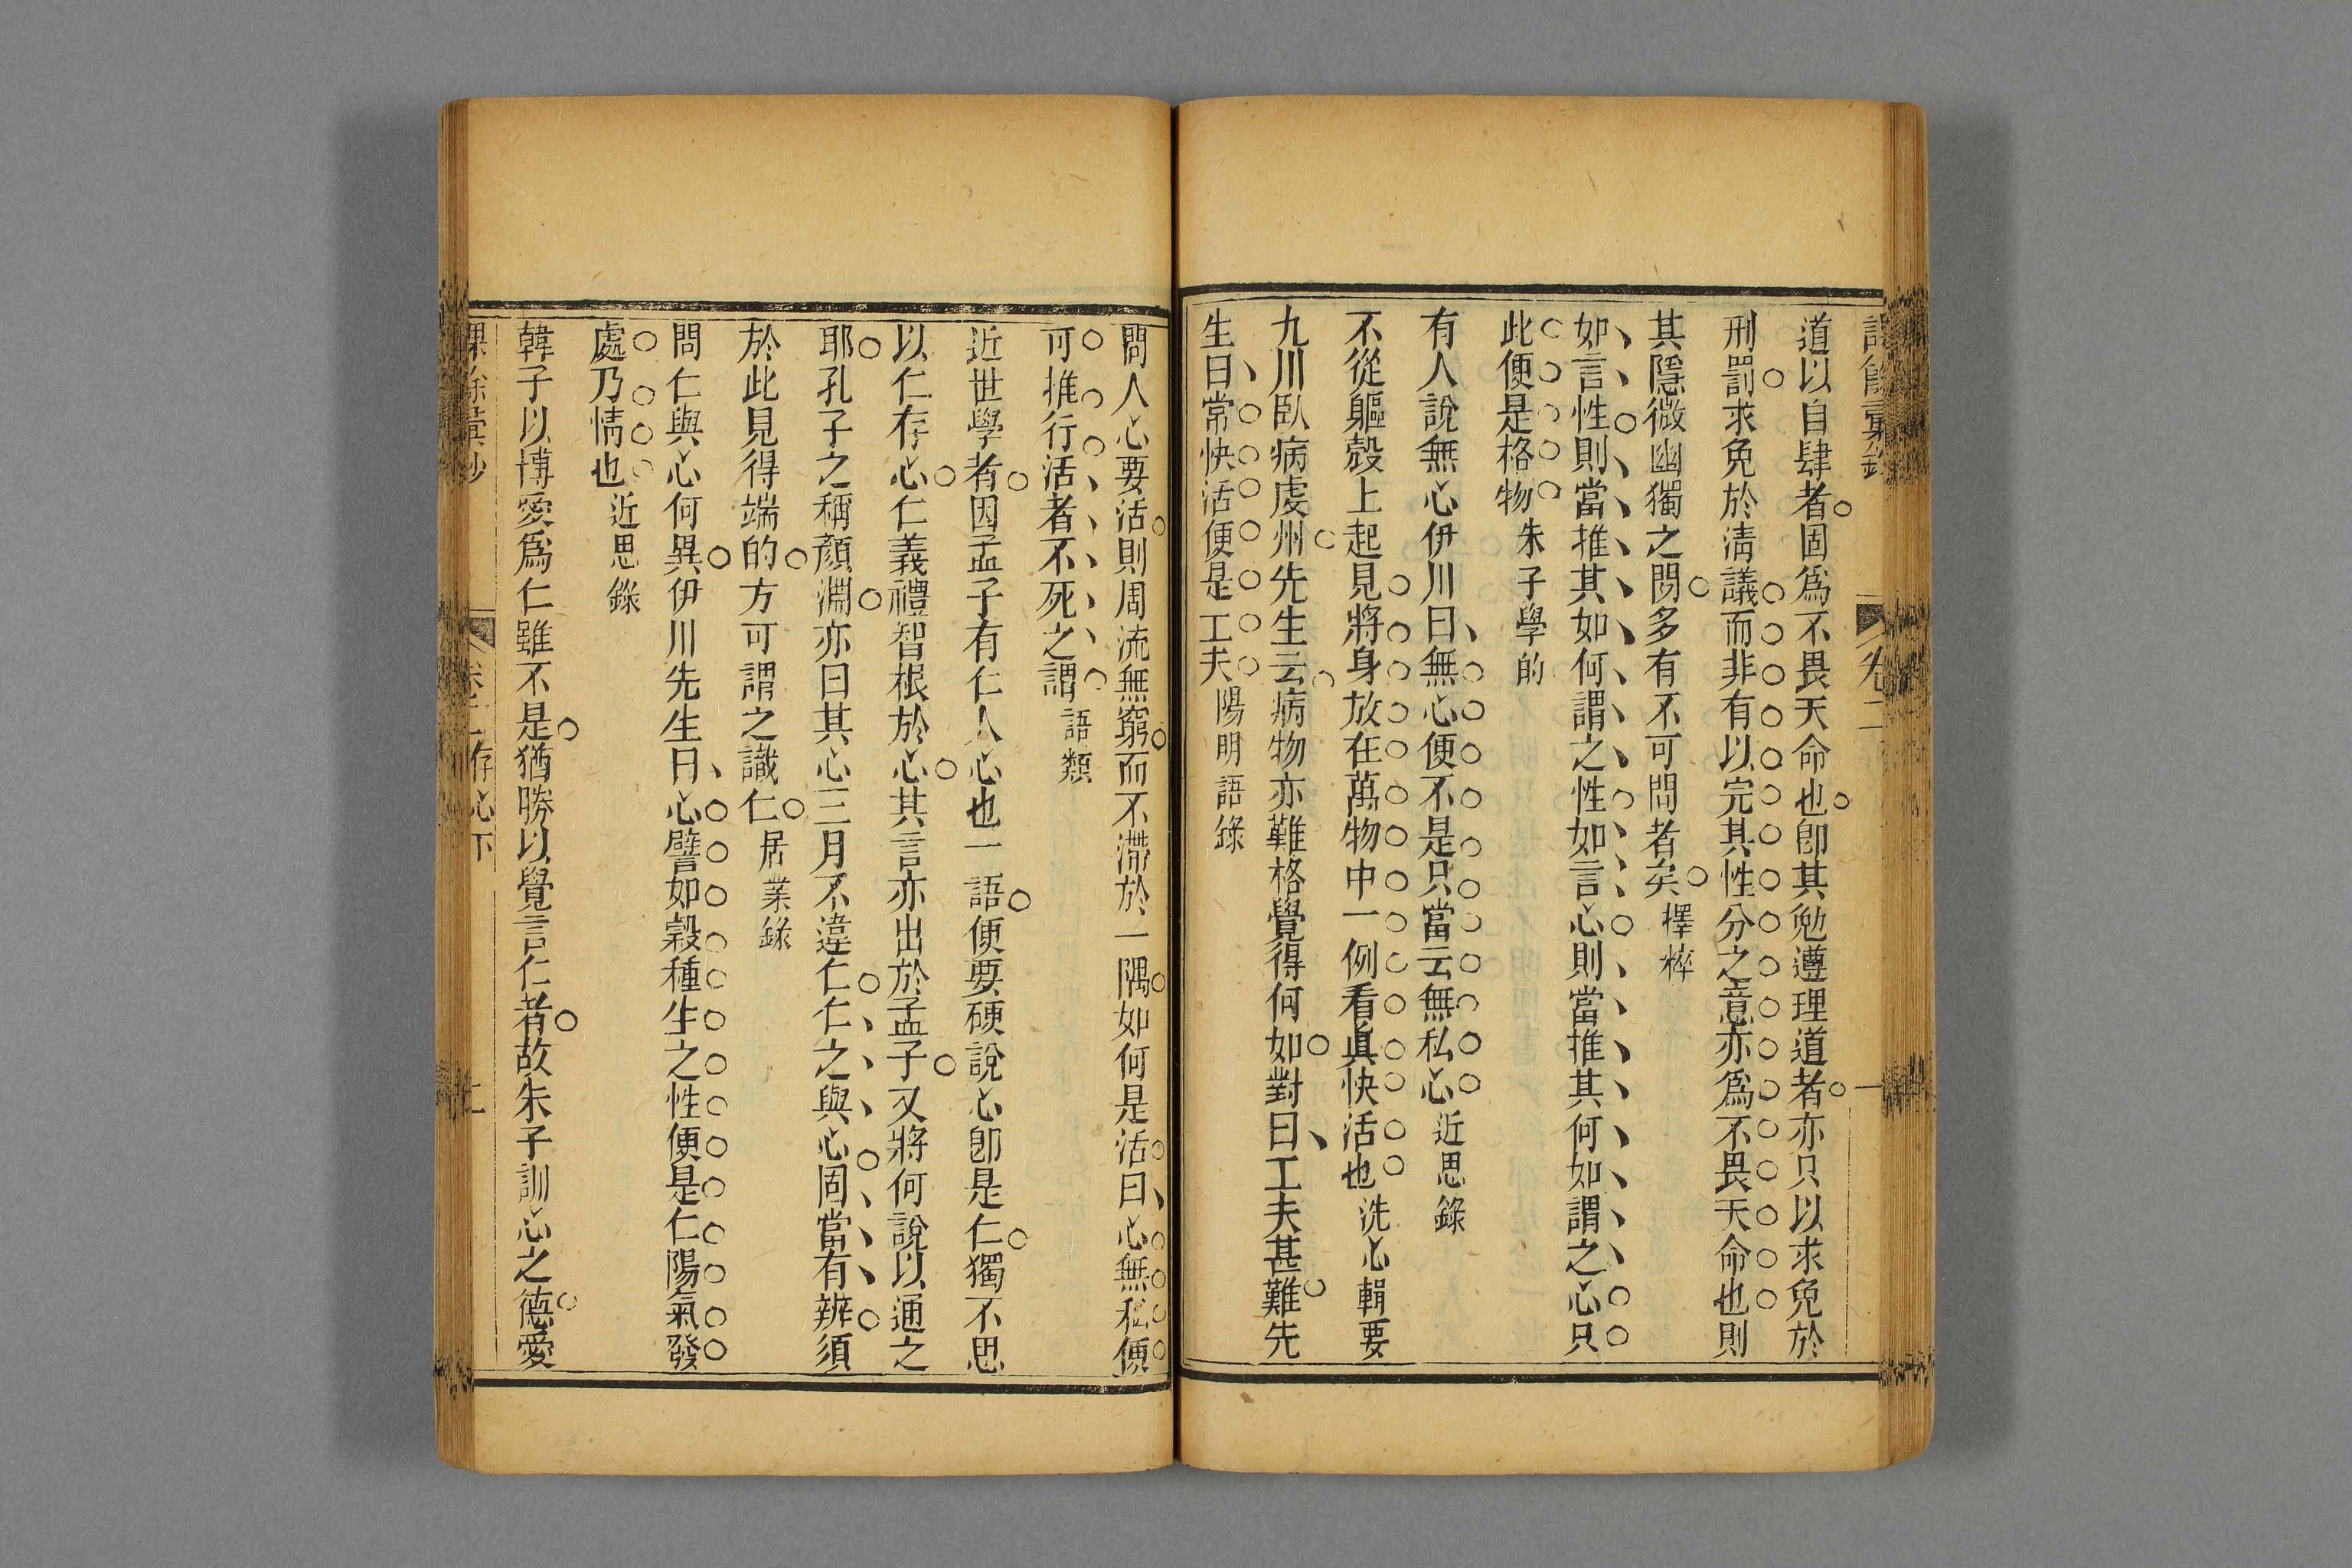 道以自肆者固爲不畏天命也卽其勉遵理道者亦只以求免於
刑罰求免於淸議而非有以完其性分之意亦爲不畏天命也則
其隱微幽獨之閒多有不可問者矣 擇粹
如言性則當推其如何謂之性如言心則當推其何如謂之心只
此便是格物 朱子學的
有人說無心伊川曰無心便不是只當云無私心 近思錄
不從軀殼上起見將身放在萬物中一例看眞快活也 洗心輯要
九川臥病虔州先生云病物亦難格覺得何如對曰工夫甚難先
生曰常快活便是工夫 陽明語錄
問人心要活則周流無窮而不滯於一隅如何是活曰心無私便
可推行活者不死之謂 語類
近世學者因孟子有仁人心也一語便要硬說心卽是仁獨不思
以仁存心仁義禮智根於心其言亦出於孟子又將何說以通之
耶孔子之稱顏淵亦曰其心三月不違仁仁之與心固當有辨須
於此見得端的方可謂之識仁 居業錄
問仁與心何異伊川先生曰心譬如穀種生之性便是仁陽氣發
處乃情也 近思錄
韓子以博愛爲仁雖不是猶勝以覺言仁者故朱子訓心之德愛
卷二存心下